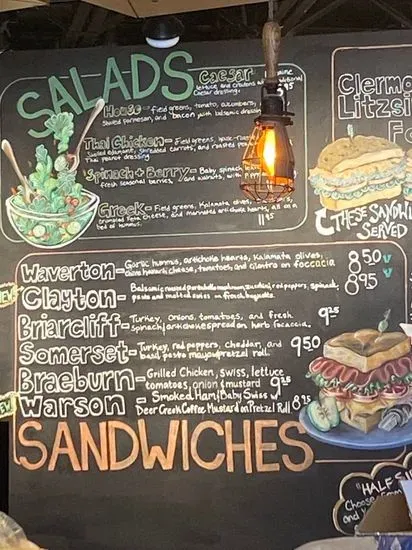 SALADS
Caesar
lettuce, and croutons
Caesar dressing.
House - Field greens, tomato, cucumbers,
Shaved parmesan, and bacon with balsamic
Thai Chicken - Field greens,
edamame, shredded carrots, and roasted
Thai peanut dressing
Spinach + Berry - Baby spinach
fresh seasonal berries, and walnuts, with
Greek - Field greens, Kalamata olives,
crumbled Feta cheese, and marinated artichoke hearts, all on a
bed of hummus. 11.95
Clerm
Litzsi
F
THESE SANDWI
SERVED
Waverton - Garlic hummus, artichoke hearts, Kalamata olives, 8.50 V
cheese, tomatoes, and cilantro on foccacia
Clayton - Balsamic roasted portabello mushroom, zucchini, red peppers, spinach, 8.95 V
pesto and melted swiss on french baguette.
Briarcliff - Turkey, onions, tomatoes, and fresh 9.25
spinach/artichoke spread on herb focaccia.
Somerset - Turkey, red peppers, cheddar, and 9.50
basil pesto mayo/pretzel roll.
Braeburn - Grilled Chicken, Swiss, lettuce
tomatoes, onion & mustard 9.25
Warson - Smoked Ham/Baby Swiss w/
Deer Creek Coffee Mustard on Pretzel Roll 8.25
SANDWICHES
"HALF SI
Choose